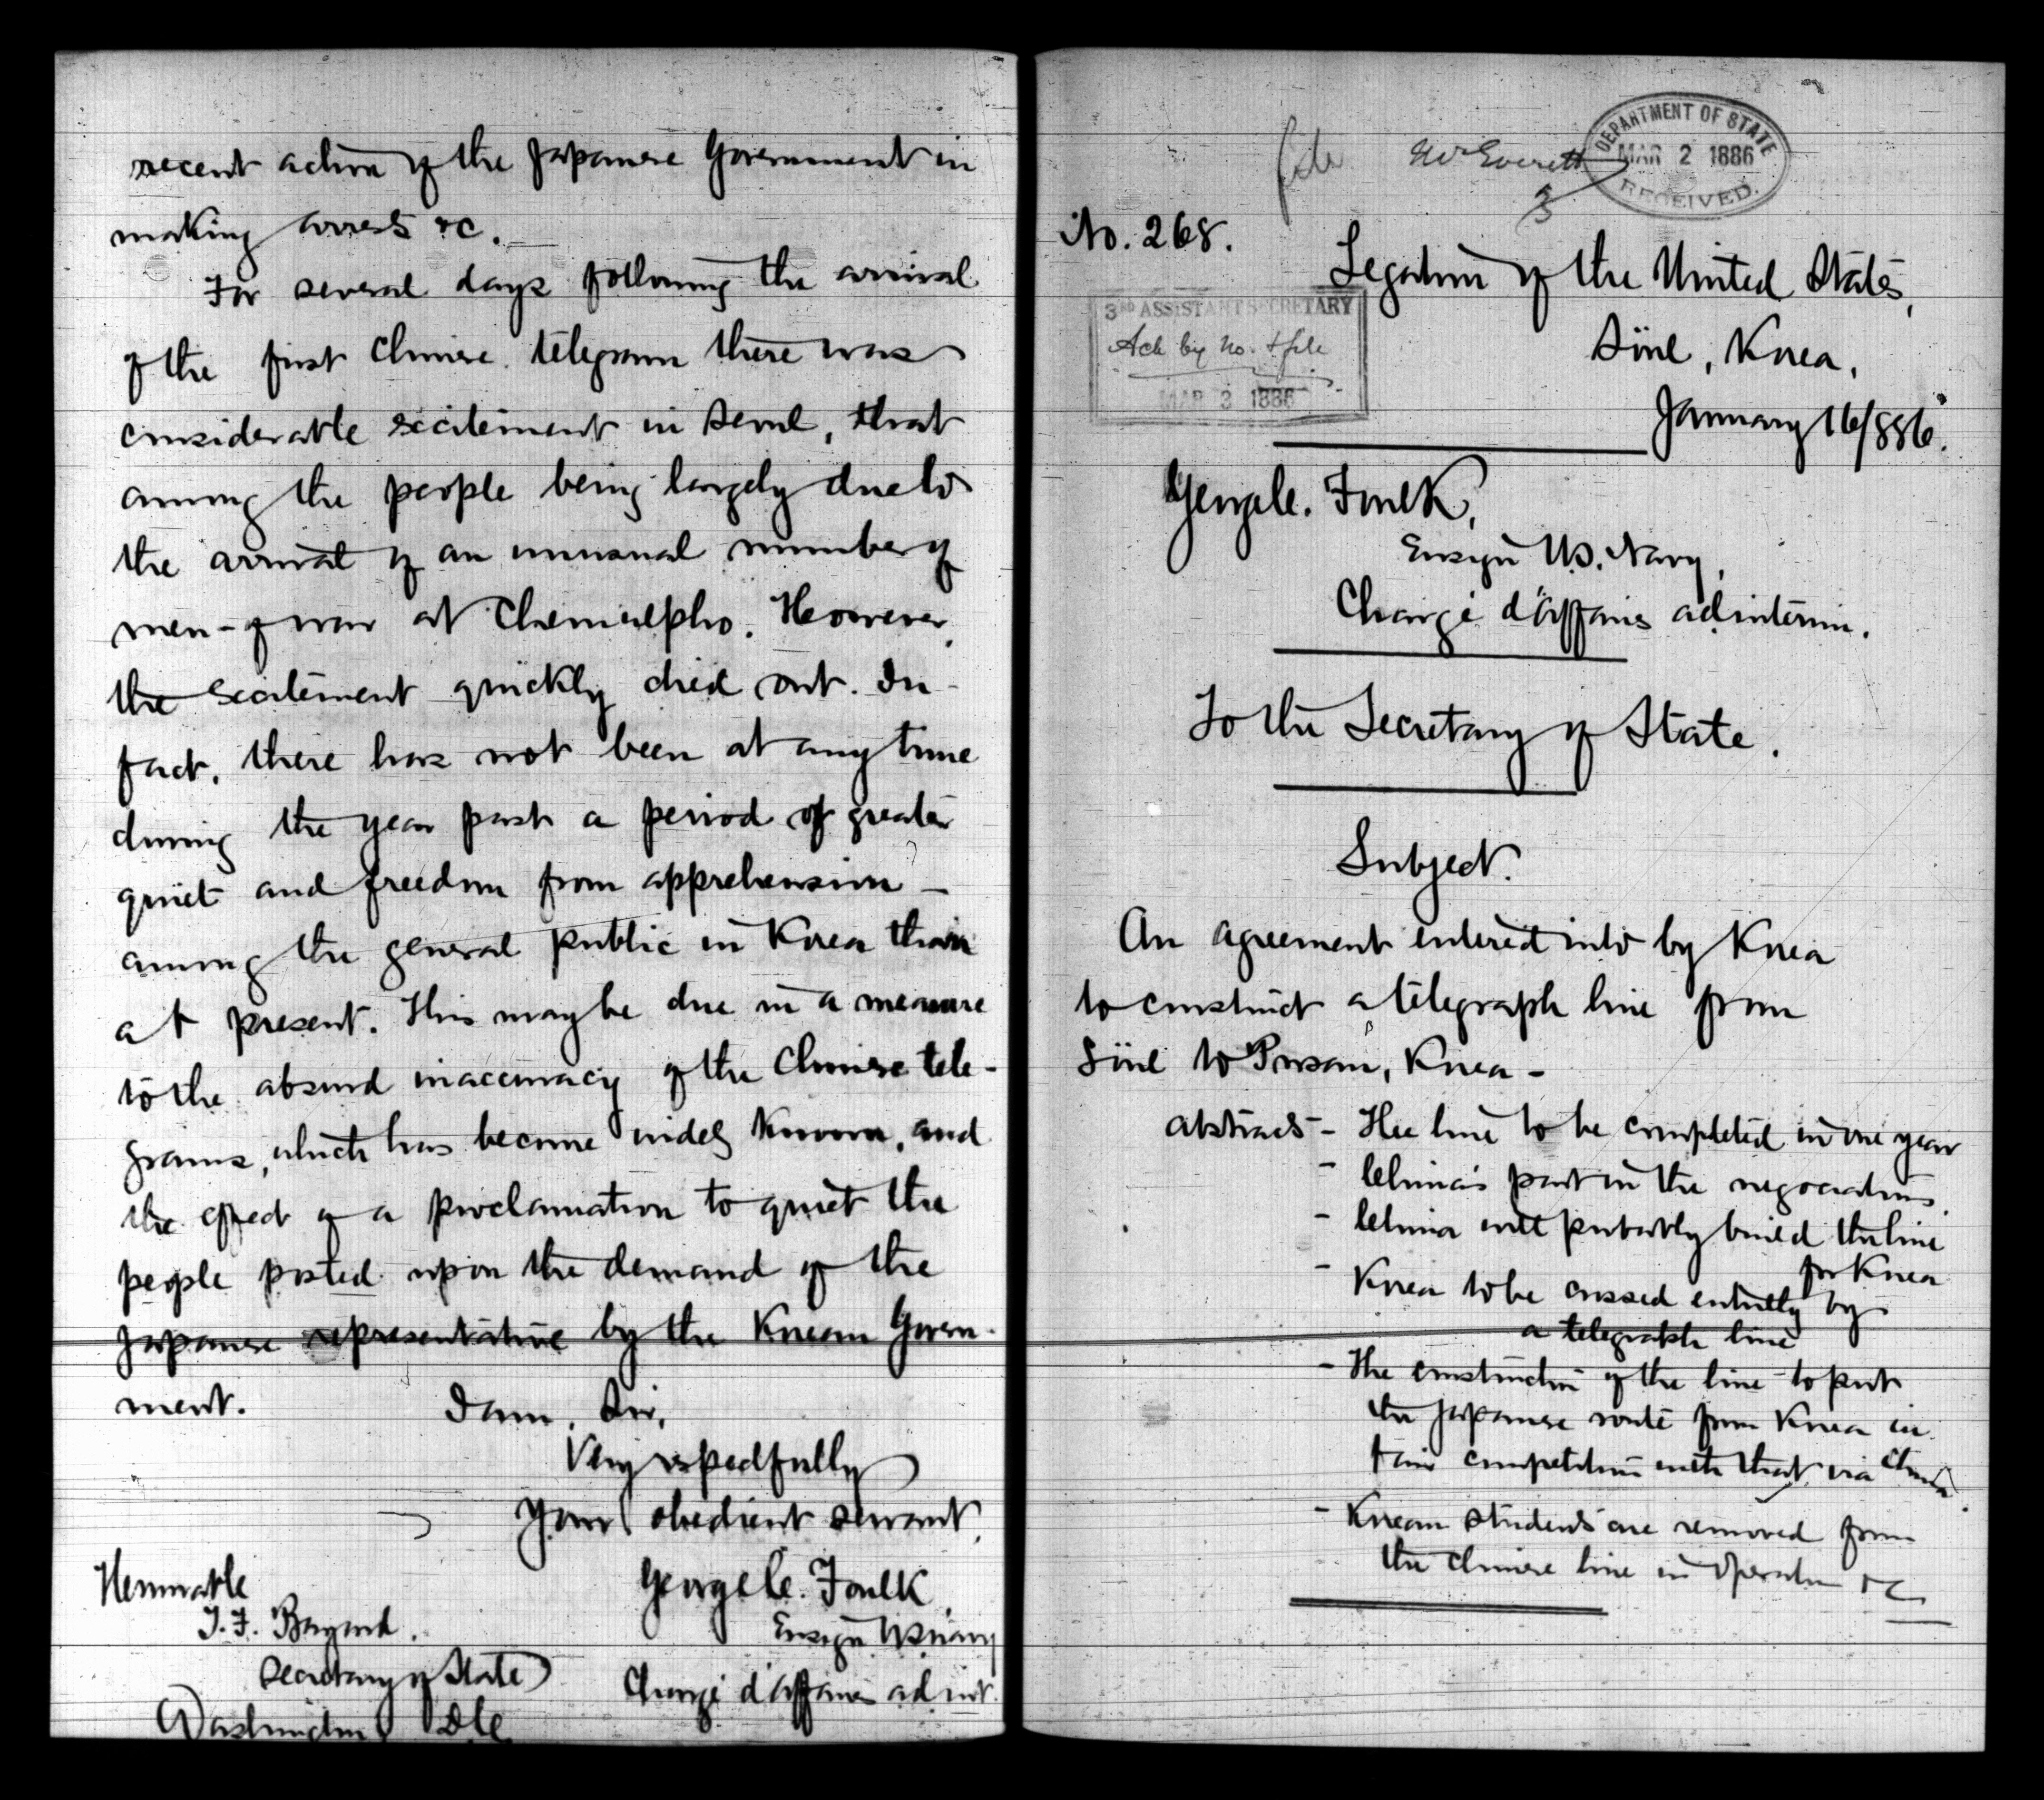 recent action of the Japanese Government in
making arrests &c.
For several days following the arrival
of the first Chinese telegram there was
considerable excitement in Seoul, that
among the people being largely due to
the arrival of an unusual number of
men-of-war at Chemulpho. However,
the excitement quickly died out. In
fact, there has not been at any time
during the year past a period of greater
quiet and freedom from apprehension —
among the general public in Korea than
at present. This may be due in a measure
to the absurd inaccuracy of the Chinese tele-
grams, which has become widely known, and
the effect of a proclamation to quiet the
people posted upon the demand of the
Japanese representative by the Korean Govern-
ment.
I am, Sir,
Very respectfully
Your obedient servant,
George C. Foulk
Ensign US Navy
Chargé d'affaires ad int.
Honorable
T. F. Bayard.
Secretary of State
Washington D.C.
file Mr Everett
DEPARTMENT OF STATE
MAR 2 1886
RECEIVED.
No. 268.
Legation of the United States,
Söul, Korea,
January 16/886.
3RD ASSISTANT SECRETARY
Ack by No. & file
MAR 3 1886
George C. Foulk,
Ensign U.S. Navy,
Chargé d'affaires ad interim.
To the Secretary of State.
Subject.
An agreement entered into by Korea
to construct a telegraph line from
Söul to Pusan, Korea —
abstract — The line to be completed in one year
- China's part in the negociations
- China will probably build the line
for Korea
- Korea to be crossed entirely by
a telegraph line
- The construction of the line to put
the Japanese route from Korea in
fair competition with that via China.
- Korean students are removed from
the Chinese line in operation &c